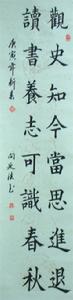 觀史知今當思進退
讀書養志可識春秋
庚寅年新春